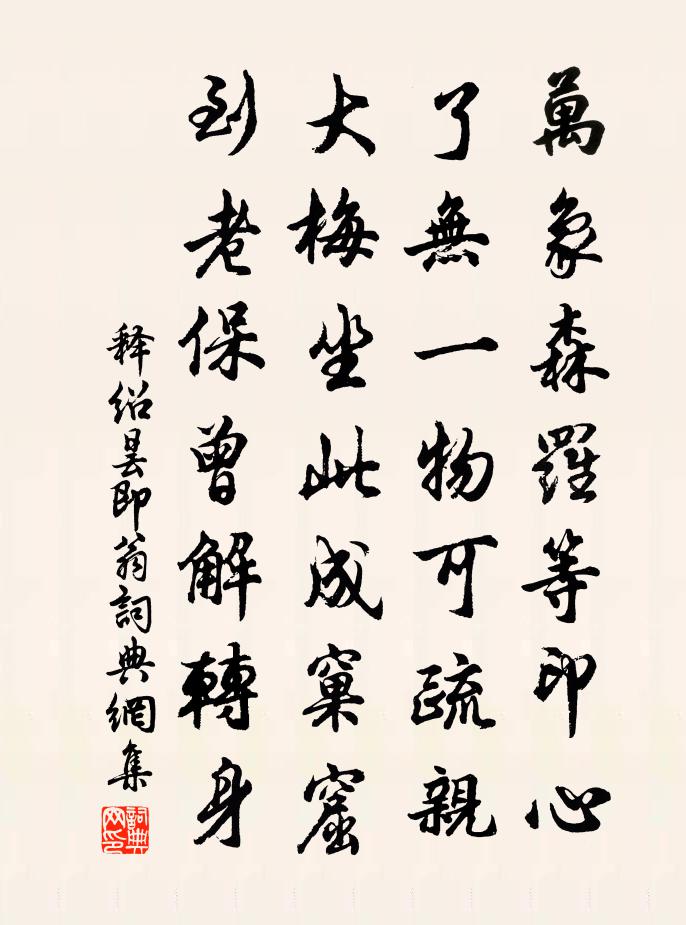 萬象森羅等印心
了無一物可疏親
大梅坐此成窠窟
到老保曾解轉身
释绍昙即翁詞典網集
詞典網印